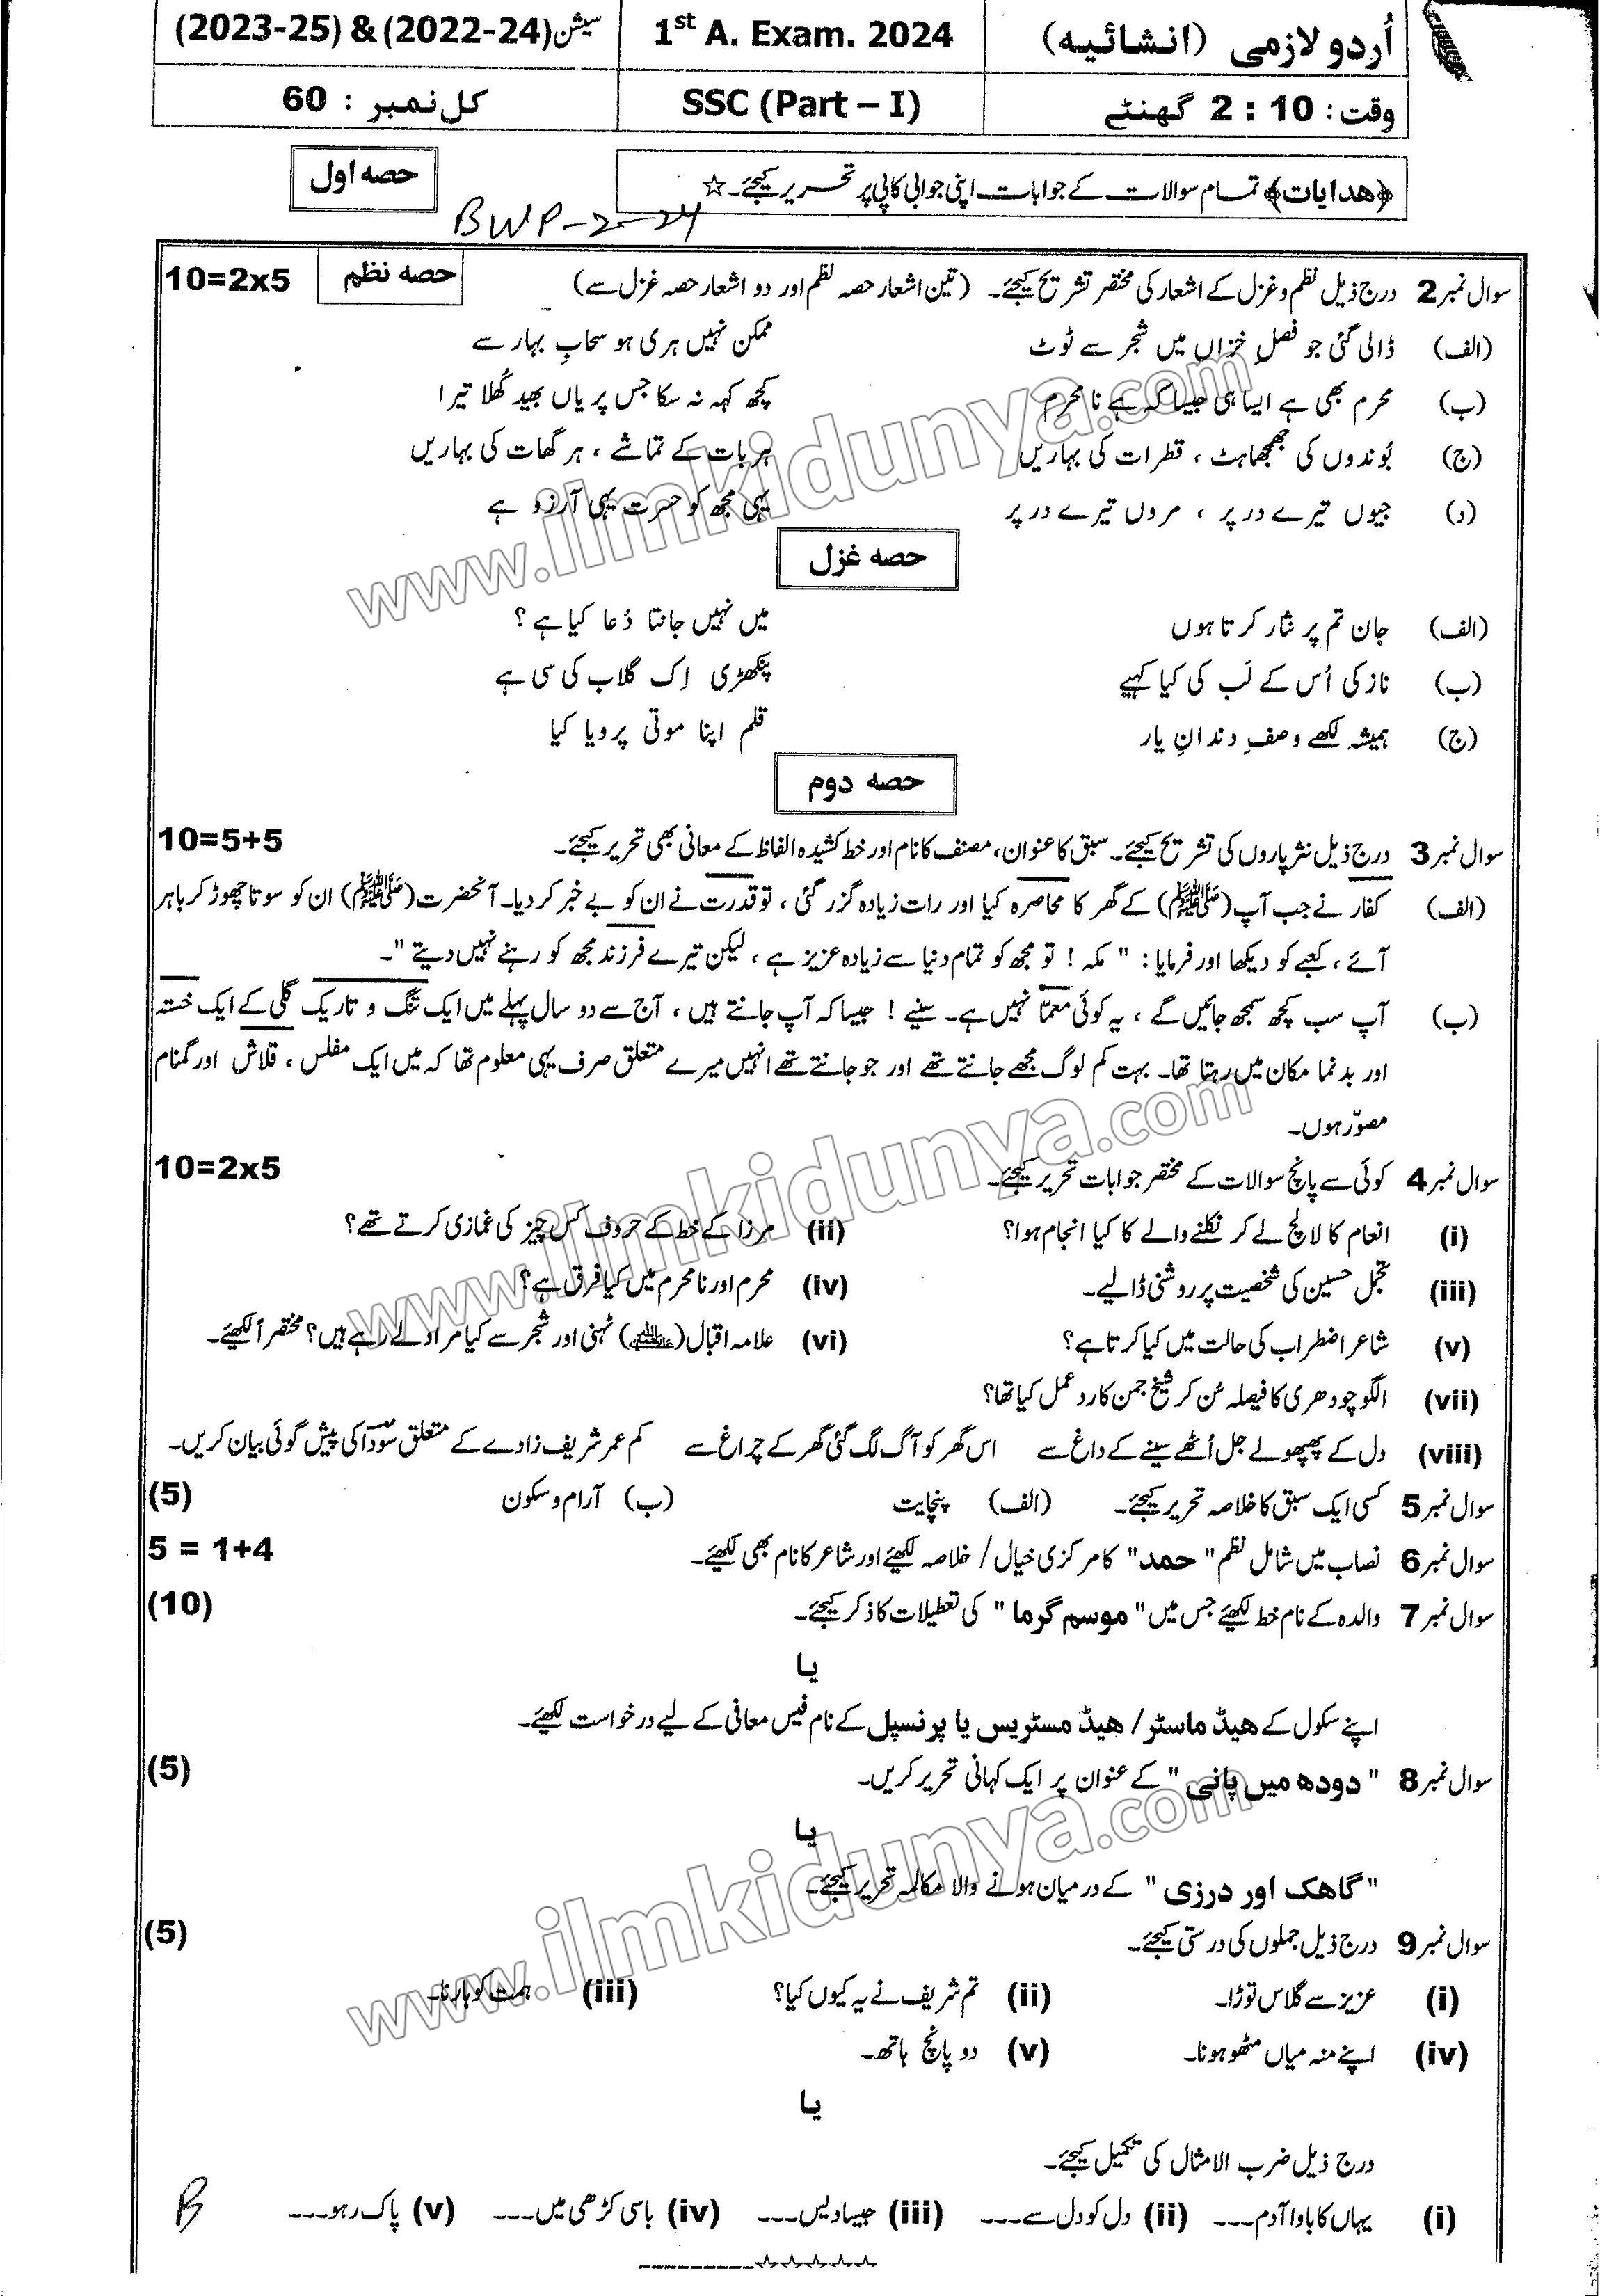 اُردو لازمی (انشائیہ) 1st A. Exam. 2024 سیشن (2022-24) & (2023-25)
وقت: 2 : 10 گھنٹے SSC (Part – I) کل نمبر : 60
﴿ھدایات﴾ تمام سوالات کے جوابات اپنی جوابی کاپی پر تحریر کیجئے۔ ☆ حصہ اول
BWP-2-24
سوال نمبر 2 درج ذیل نظم و غزل کے اشعار کی مختصر تشریح کیجئے۔ (تین اشعار حصہ نظم اور دو اشعار حصہ غزل سے) حصہ نظم 10=2x5
(الف) ڈالی گئی جو فصلِ خزاں میں شجر سے ٹوٹ ممکن نہیں ہری ہو سحابِ بہار سے
(ب) محرم بھی ہے ایسا ہی جیسا کہ ہے نا محرم کچھ کہہ نہ سکا جس پر یاں بھید کُھلا تیرا
(ج) بُوندوں کی جھمجھماہٹ ، قطرات کی بہاریں ہر بات کے تماشے ، ہر گھات کی بہاریں
(د) جیوں تیرے در پر ، مروں تیرے در پر یہی مجھ کو حسرت یہی آرزو ہے
حصہ غزل
(الف) جان تم پر نثار کرتا ہوں میں نہیں جانتا دُعا کیا ہے ؟
(ب) نازکی اُس کے لَب کی کیا کہیے پنکھڑی اِک گلاب کی سی ہے
(ج) ہمیشہ لکھے وصفِ دندانِ یار قلم اپنا موتی پرویا کیا
حصہ دوم
سوال نمبر 3 درج ذیل نثر پاروں کی تشریح کیجئے۔ سبق کا عنوان، مصنف کا نام اور خط کشیدہ الفاظ کے معانی بھی تحریر کیجئے۔ 10=5+5
(الف) کفار نے جب آپ (ﷺ) کے گھر کا محاصرہ کیا اور رات زیادہ گزر گئی ، تو قدرت نے ان کو بے خبر کر دیا۔ آنحضرت (ﷺ) ان کو سوتا چھوڑ کر باہر
آئے ، کعبے کو دیکھا اور فرمایا : " مکہ ! تو مجھ کو تمام دنیا سے زیادہ عزیز ہے ، لیکن تیرے فرزند مجھ کو رہنے نہیں دیتے "۔
(ب) آپ سب کچھ سمجھ جائیں گے ، یہ کوئی معمّا نہیں ہے۔ سنیے ! جیسا کہ آپ جانتے ہیں ، آج سے دو سال پہلے میں ایک تنگ و تاریک گلی کے ایک خستہ
اور بدنما مکان میں رہتا تھا۔ بہت کم لوگ مجھے جانتے تھے اور جو جانتے تھے انہیں میرے متعلق صرف یہی معلوم تھا کہ میں ایک مفلس ، قلاش اور گمنام
مصوّر ہوں۔
سوال نمبر 4 کوئی سے پانچ سوالات کے مختصر جوابات تحریر کیجئے۔ 10=2x5
(i) انعام کا لالچ لے کر نکلنے والے کا کیا انجام ہوا؟ (ii) مرزا کے خط کے حروف کس چیز کی غمازی کرتے تھے؟
(iii) تجمل حسین کی شخصیت پر روشنی ڈالیے۔ (iv) محرم اور نا محرم میں کیا فرق ہے؟
(v) شاعر اضطراب کی حالت میں کیا کرتا ہے؟ (vi) علامہ اقبال (رحمۃ اللہ علیہ) ٹہنی اور شجر سے کیا مراد لے رہے ہیں؟ مختصراً لکھئے۔
(vii) الگو چودھری کا فیصلہ سُن کر شیخ جمن کا ردعمل کیا تھا؟
(viii) دل کے پھپھولے جل اُٹھے سینے کے داغ سے اس گھر کو آگ لگ گئی گھر کے چراغ سے کم عمر شریف زادے کے متعلق سوؔدا کی پیش گوئی بیان کریں۔
سوال نمبر 5 کسی ایک سبق کا خلاصہ تحریر کیجئے۔ (الف) پنچایت (ب) آرام و سکون (5)
سوال نمبر 6 نصاب میں شامل نظم " حمد " کا مرکزی خیال / خلاصہ لکھئے اور شاعر کا نام بھی لکھئے۔ 5 = 1+4
سوال نمبر 7 والدہ کے نام خط لکھئے جس میں " موسم گرما " کی تعطیلات کا ذکر کیجئے۔ (10)
یا
اپنے سکول کے ھیڈ ماسٹر / ھیڈ مسٹریس یا پرنسپل کے نام فیس معافی کے لیے درخواست لکھئے۔
سوال نمبر 8 " دودھ میں پانی " کے عنوان پر ایک کہانی تحریر کریں۔ (5)
یا
" گاھک اور درزی " کے درمیان ہونے والا مکالمہ تحریر کیجئے۔
سوال نمبر 9 درج ذیل جملوں کی درستی کیجئے۔ (5)
(i) عزیز سے گلاس توڑا۔ (ii) تم شریف نے یہ کیوں کیا؟ (iii) ہمت کو ہارنا۔
(iv) اپنے منہ میاں مٹھو ہونا۔ (v) دو پانچ ہاتھ۔
یا
درج ذیل ضرب الامثال کی تکمیل کیجئے۔
(i) یہاں کا باوا آدم ---- (ii) دل کو دل سے ---- (iii) جیسا دیس ---- (iv) باسی کڑھی میں ---- (v) پاک رہو ----
www.ilmkidunya.com
www.ilmkidunya.com
www.ilmkidunya.com